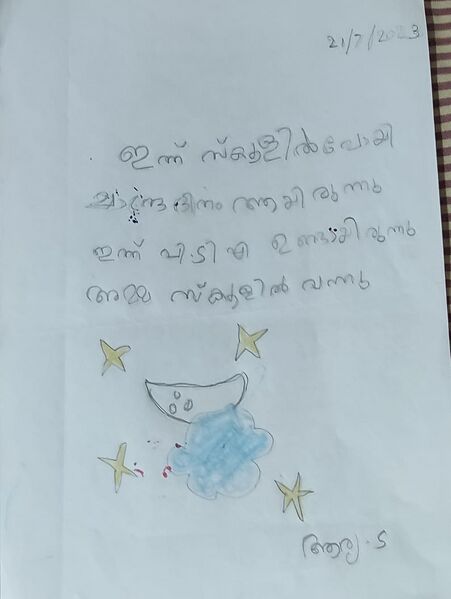 21/7/2023
ഇന്ന് സ്കൂളിൽ പോയി
ചാന്ദ്രദിനം ആയിരുന്നു
ഇന്ന് പി.ടി എ ഉണ്ടായിരുന്നു
അമ്മ സ്കൂളിൽ വന്നു
ആര്യ . S